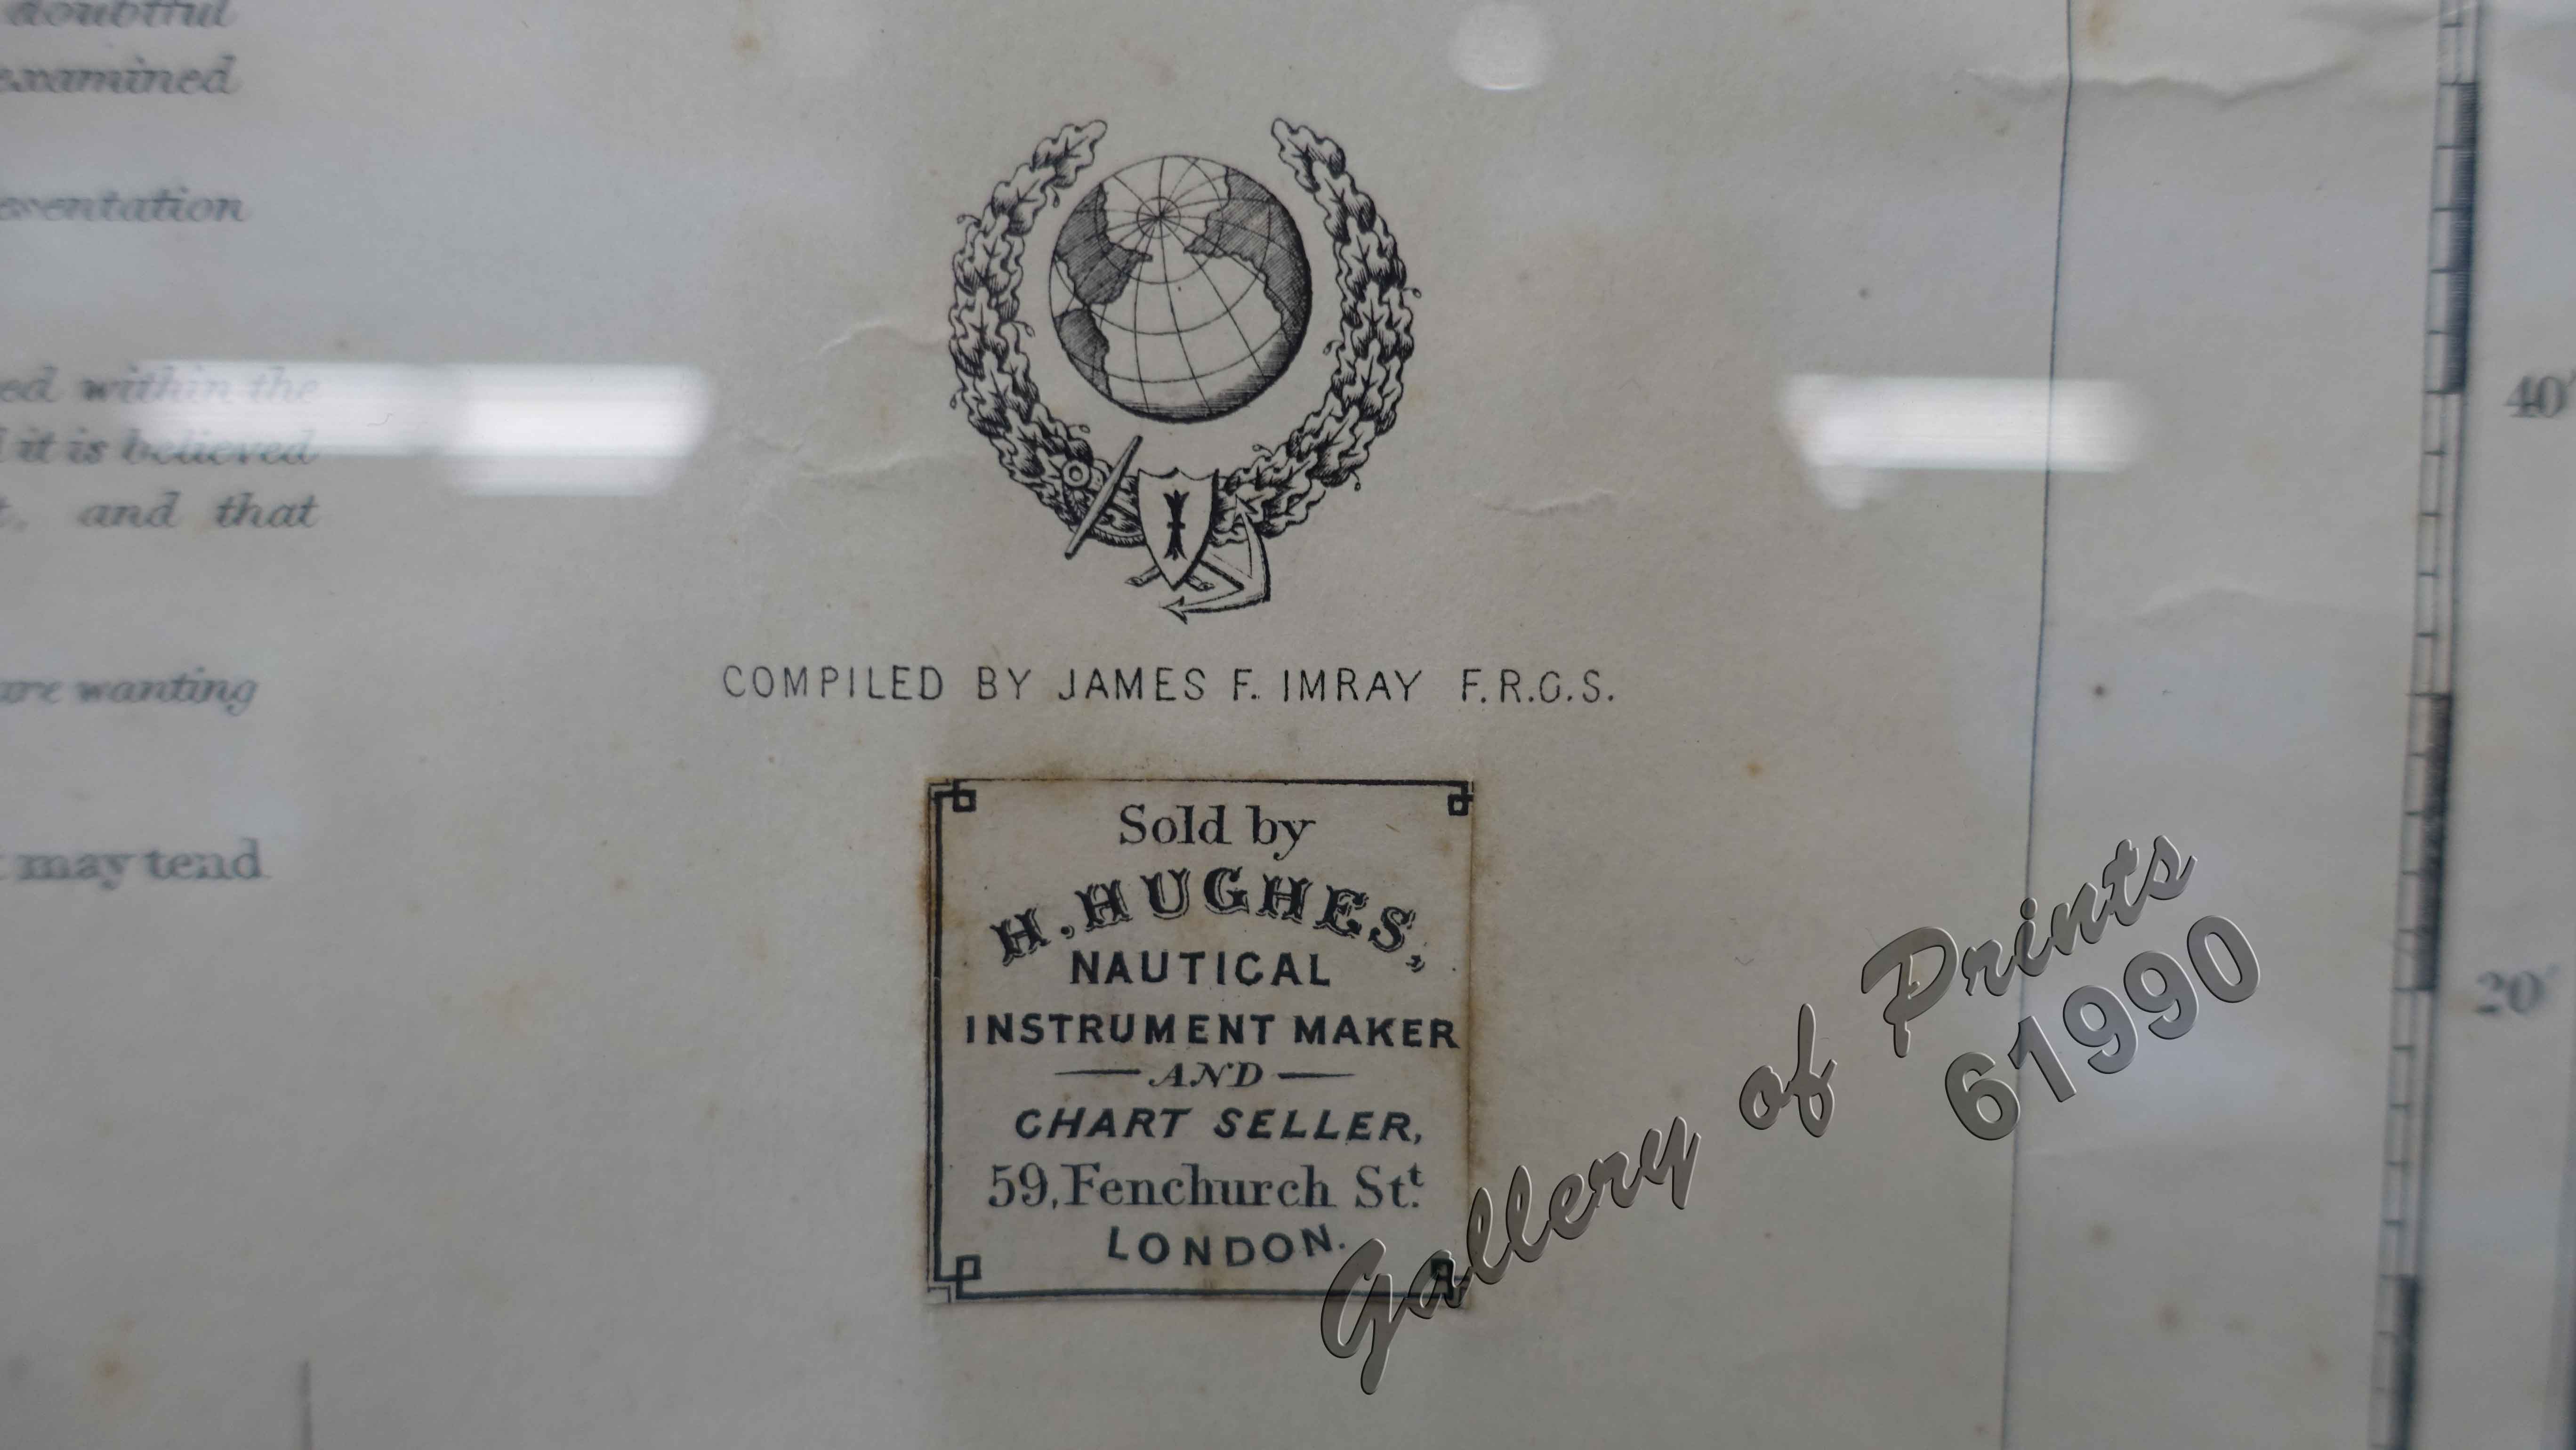 doubtful
examined
esentation
ed within the
it is believed
and that
are wanting
may tend
COMPILED BY JAMES F. IMRAY F.R.G.S.
Sold by
H. HUGHES,
NAUTICAL
INSTRUMENT MAKER
AND
CHART SELLER,
59, Fenchurch St.
LONDON.
40'
20'
Gallery of Prints
61990